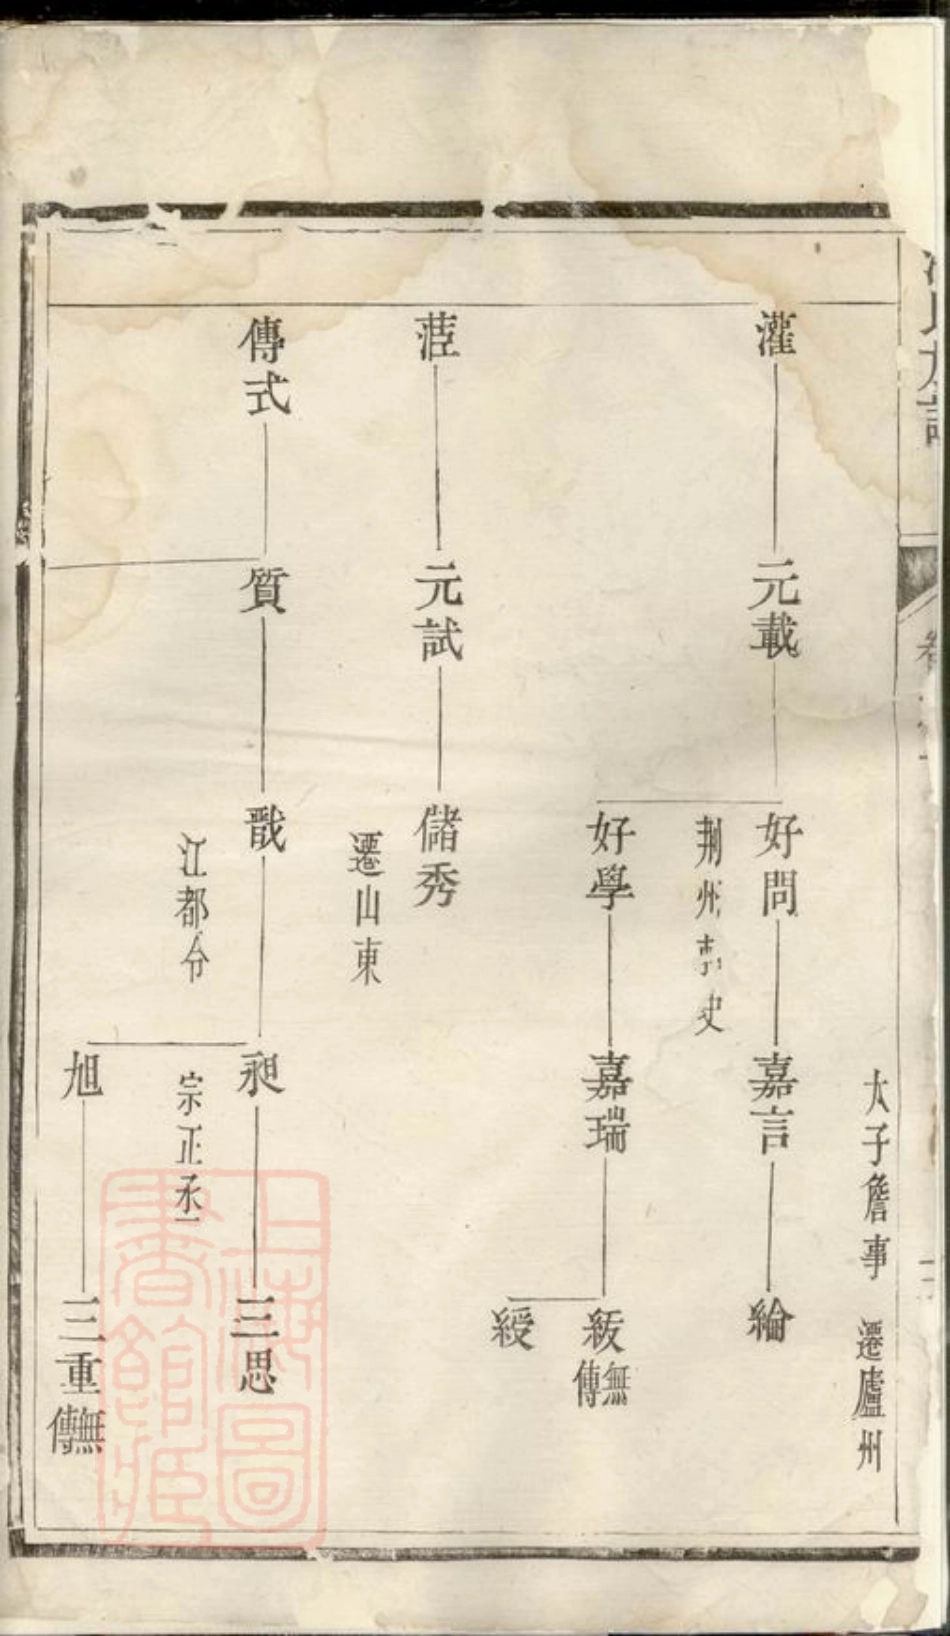 太子詹事 遷廬州
灌 元載 好問 嘉言 綸
荆州刺史
好學 嘉瑞 紱 無傳
綬
元試 儲秀
遷山東
傳式 質 戩 昶 三思
江都令 宗正丞
旭 三重 無傳
上海圖書館藏